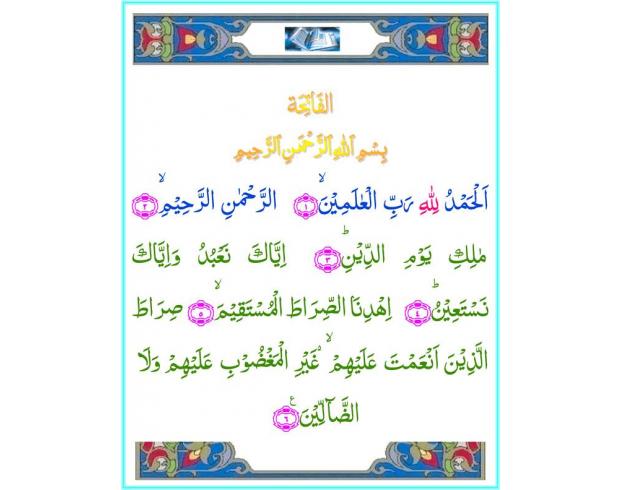 الفَاتِحَة
بِسْمِ ٱللهِ ٱلرَّحْمَٰنِ ٱلرَّحِيمِ
اَلْحَمْدُ لِلّٰهِ رَبِّ الْعٰلَمِيْنَۙ ﴿۱﴾ الرَّحْمٰنِ الرَّحِيْمِۙ ﴿۲﴾
مٰلِكِ يَوْمِ الدِّيْنِؕ ﴿۳﴾ اِيَّاكَ نَعْبُدُ وَاِيَّاكَ
نَسْتَعِيْنُؕ ﴿۴﴾ اِهْدِنَا الصِّرَاطَ الْمُسْتَقِيْمَۙ ﴿۵﴾ صِرَاطَ
الَّذِيْنَ اَنْعَمْتَ عَلَيْهِمْ ۙ۬ غَيْرِ الْمَغْضُوْبِ عَلَيْهِمْ وَلَا
الضَّآلِّيْنَ ع ﴿۶﴾